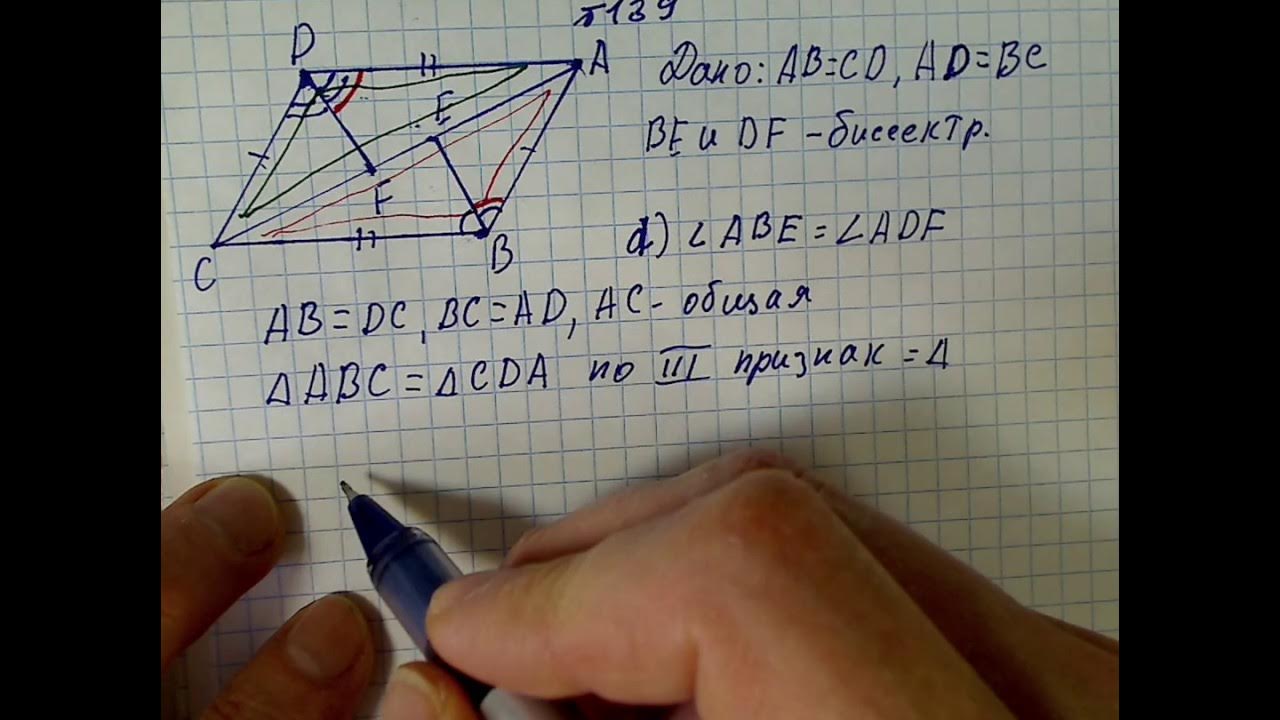 139
D
A
Дано: AB=CD, AD=BC
E
BE и DF - биссектр.
F
d) ∠ABE=∠ADF
B
C
AB=DC, BC=AD, AC- общая
△ABC=△CDA по III признак=△